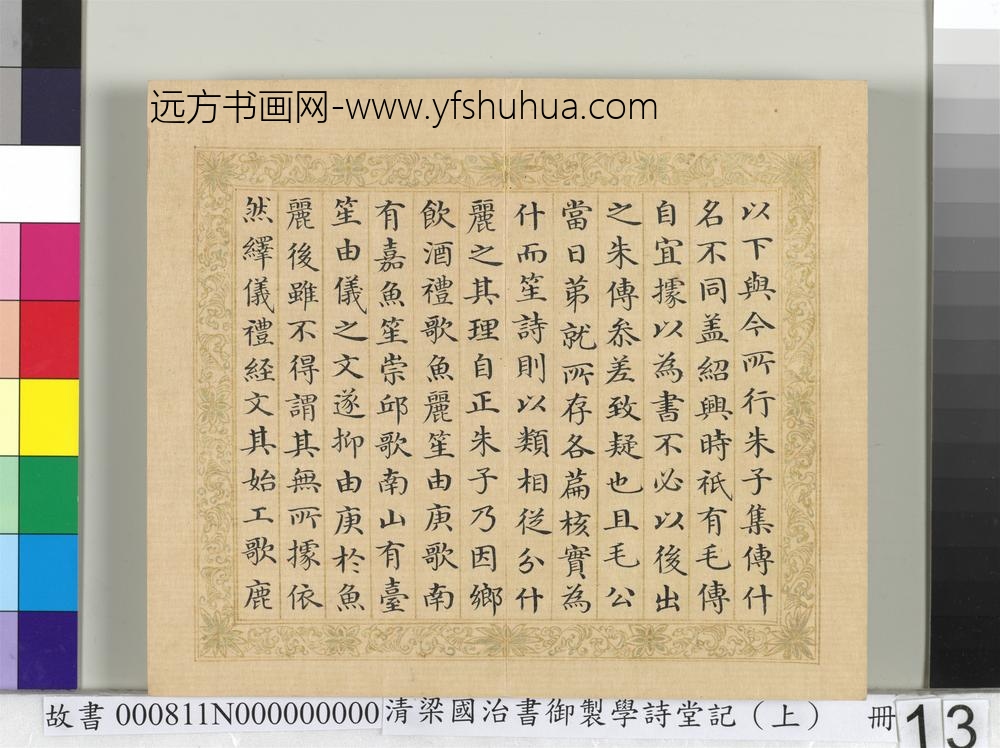 远方书画网-www.yfshuhua.com
以下與今所行朱子集傳什
名不同盖紹興時祇有毛傳
自宜據以為書不必以後出
之朱傳叅差致疑也且毛公
當日苐就所存各萹核實為
什而笙詩則以類相從分什
麗之其理自正朱子乃因鄉
飲酒禮歌魚麗笙由庚歌南
有嘉魚笙崇邱歌南山有臺
笙由儀之文遂抑由庚於魚
麗後雖不得謂其無所據依
然繹儀禮経文其始工歌鹿
故書 000811N000000000 清梁國治書御製學詩堂記（上） 冊 13